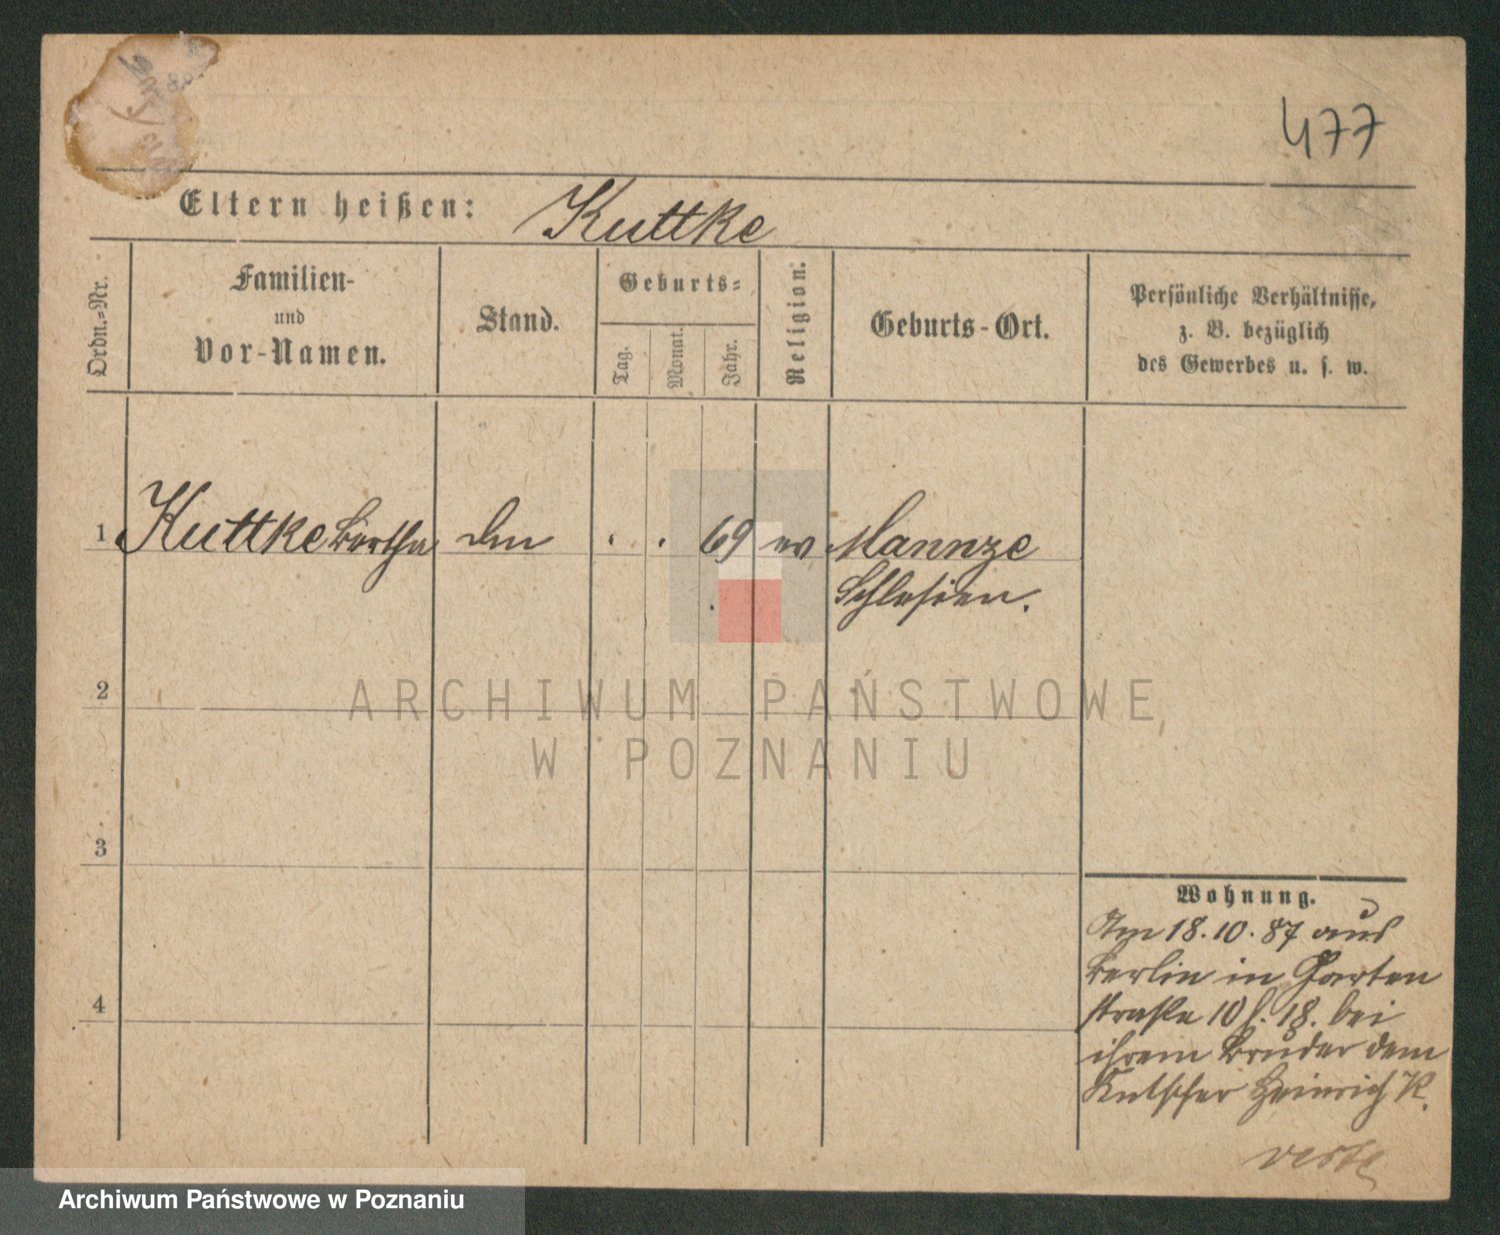 477
Eltern heißen: Kuttke
Ordn.=Nr.
Familien-
und
Vor-Namen.
Stand.
Geburts=
Tag.
Monat.
Jahr.
Religion.
Geburts-Ort.
Persönliche Verhältnisse,
z. B. bezüglich
des Gewerbes u. s. w.
1 Kuttke Bertha 69 ev Mannze
Schlesien.
2
3
4
Wohnung.
Am 18.10.87 aus
Berlin in Garten
straße 10 18. bei
ihrem Bruder dem
Kutscher Heinrich K.
verte
ARCHIWUM PAŃSTWOWE
W POZNANIU
Archiwum Państwowe w Poznaniu